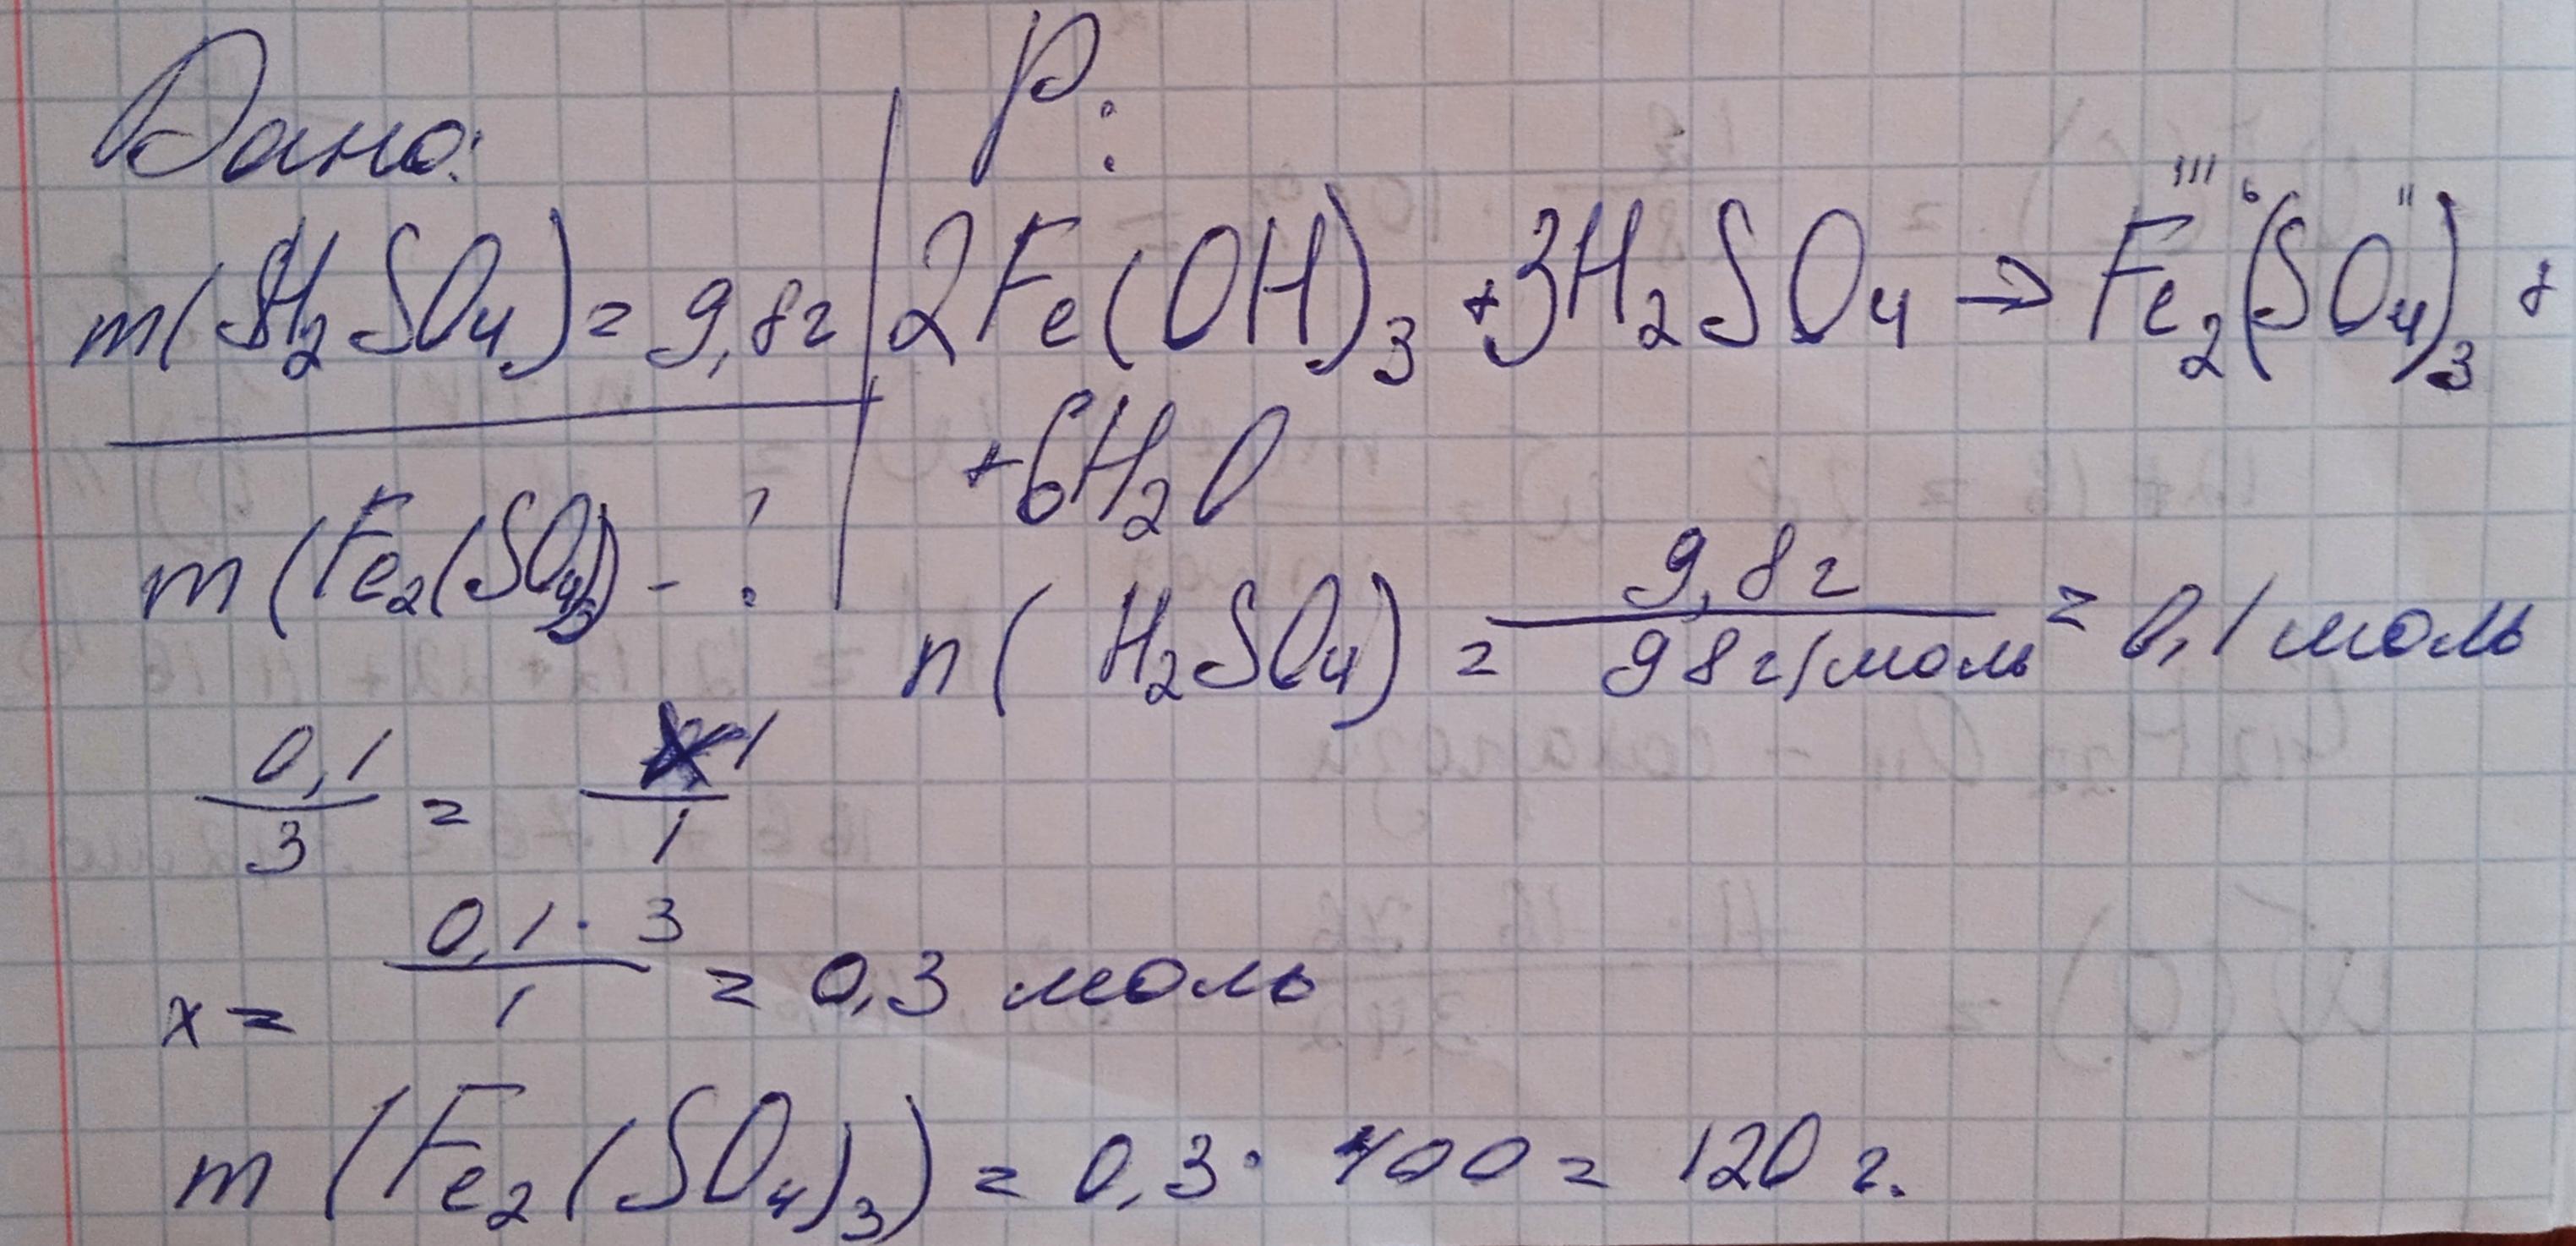 Дано:
m(H₂SO₄) = 9,8г
m(Fe₂(SO₄)₃) - ?
Р:
2Fe(OH)₃ + 3H₂SO₄ → Fe₂(SO₄)₃ +
III 6 II
+ 6H₂O
n(H₂SO₄) = 9,8г / 98г/моль = 0,1 моль
0,1 / 3 = 1 / 1
x = 0,1 · 3 / 1 = 0,3 моль
m(Fe₂(SO₄)₃) = 0,3 · 400 = 120 г.